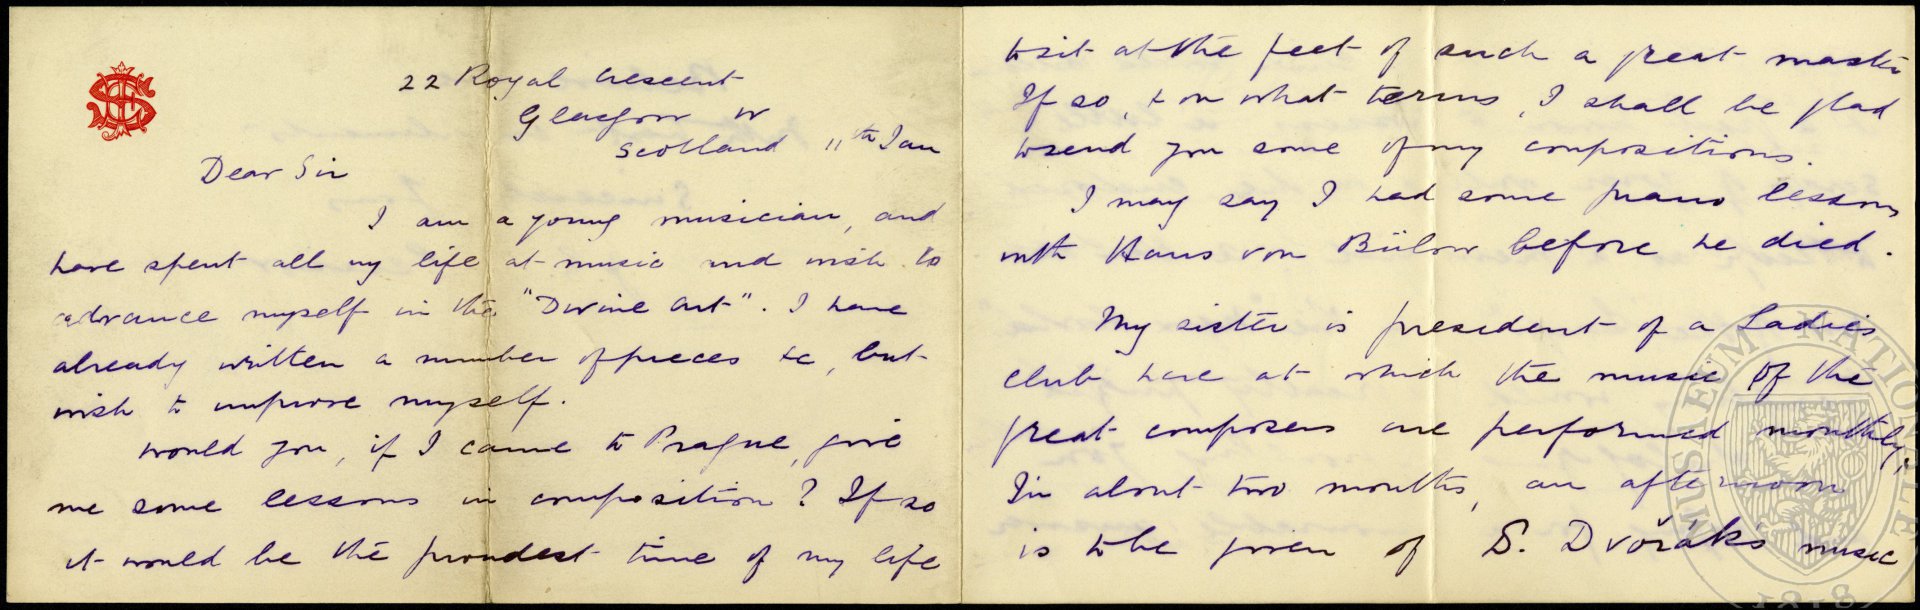 22 Royal Crescent
Glasgow W
Scotland 11th Jan
Dear Sir
I am a young musician, and
have spent all my life at music and wish to
advance myself in the "Divine Art". I have
already written a number of pieces &c, but
wish to improve myself.
Would you, if I came to Prague, give
me some lessons in composition? If so
it would be the proudest time of my life
to sit at the feet of such a great master
If so, & on what terms, I shall be glad
to send you some of my compositions.
I may say I had some piano lessons
with Hans von Bülow before he died.
My sister is president of a Ladies
club here at which the music of the
great composers are performed monthly.
In about two months, an afternoon
is to be given of D. Dvořák's music
MUSAEUM NATIONALE
1818